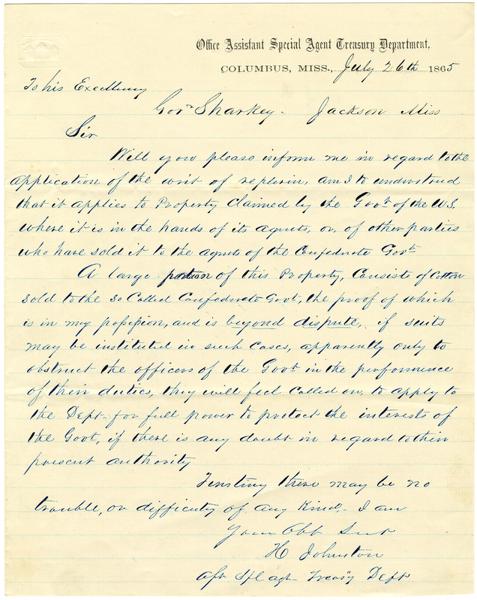 Office Assistant Special Agent Treasury Department,
COLUMBUS, MISS., July 26th 1865
To his Excellency
Gov<sup>r</sup> Sharkey. Jackson Miss
Sir
Will you please inform me in regard to the
application of the writ of replevin, am I to understand
that it applies to Property claimed by the Govt. of the U.S.
where it is in the hands of its agents, or, of other parties
who have sold it to the agents of the Confederate Govt.
A large portion of this Property, Consists of Cotton
sold to the so Called Confederate Govt, the proof of which
is in my possession, and is beyond dispute, if suits
may be instituted in such cases, apparently only to
obstruct the officers of the Govt in the performance
of their duties, they will feel called on, to apply to
the Dept. for full power to protect the interests of
the Govt, if there is any doubt in regard to their
present authority
Trusting there may be no
trouble, or difficulty of any Kind, I am
Your Obt Svt
H Johnston
Asst Spl agt Treasy Dept